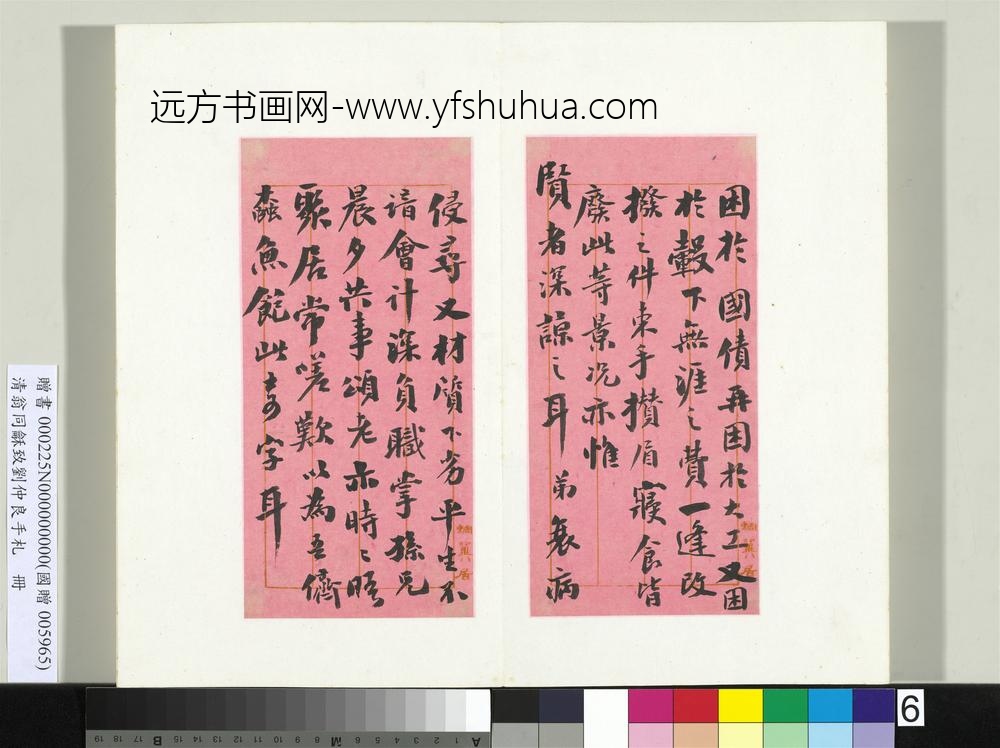 远方书画网-www.yfshuhua.com
困於國債再困於大工又困
於轂下無涯之費一逢改
撥之件束手攢眉寢食皆
廢此等景況亦惟
賢者深諒之耳弟衰病
侵尋又材質下劣平生不
諳會計深負職掌孫兄
晨夕共事頌老亦時〻晤
聚居常嗟歎以為吾儕
蠹魚飽此奇字耳
贈書 000225N000000000(國贈 005965)
清翁同龢致劉仲良手札 冊
6
19 18 17 16 15 14 13 12 11 10 9 8 7 6 5 4 3 2 1
B M A